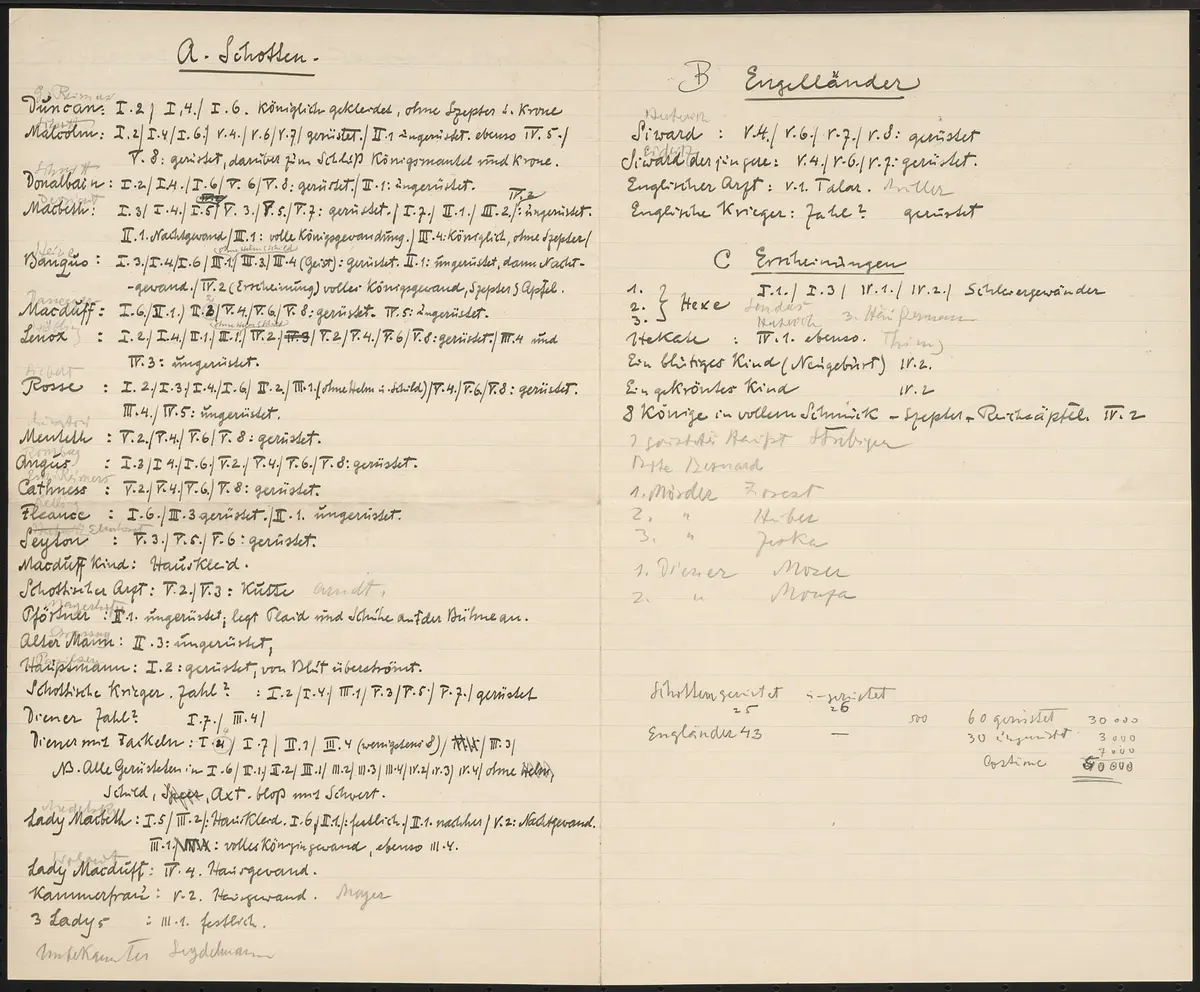 A. Schotten.
Duncan: I.2/ I,4./ I.6. Königlich gekleidet, ohne Szepter u. Krone
Malcolm: I.2/I.4/I.6./ V.4./V.6/V.7/ gerüstet./II.1 ungerüstet. ebenso IV.5./
V.8: gerüstet, darüber zum Schluß Königsmantel und Krone.
Donalbain: I.2/I.4./I.6/V.6/V.8: gerüstet./II.1: ungerüstet.
IV.2
Macbeth: I.3/I.4./I.5/V.3./V.5./V.7: gerüstet./I.7./II.1./III.2/: ungerüstet.
II.1. Nachtgewand/III.1: volle Königsgewandung./III.4: Königlich, ohne Szepter/
ohne Helm u Schild
Banquo: I.3./I.4/I.6/III.1/III.3/III.4 (Geist): gerüstet. II.1: ungerüstet, dann Nacht-
-gewand./IV.2 (Erscheinung) volles Königsgewand, Szepter & Apfel.
Macduff: I.6/II.1./II.2/V.4/V.6/V.8: gerüstet. IV.5: ungerüstet.
Lenox : I.2/I.4/II.1/III.1/IV.2/V.2/V.4./V.6/V.8: gerüstet./III.4 und
IV.3: ungerüstet.
Rosse : I.2/I.3/I.4/I.6/II.2/III.1. (ohne Helm u. Schild)/V.4/V.6/V.8: gerüstet.
III.4./IV.5: ungerüstet.
Menteth : V.2./V.4./V.6/V.8: gerüstet.
Angus : I.3/I4./I.6/V.2./V.4./V.6./V.8: gerüstet.
Cathness : V.2./V.4/V.6/V.8: gerüstet.
Fleance : I.6./III.3 gerüstet./II.1. ungerüstet.
Seyton : V.3./V.5./V.6: gerüstet.
Macduff Kind: Hauskleid.
Schottischer Arzt: V.2./V.3: Kutte Arndt.
Pförtner: II.1. ungerüstet, legt Plaid und Schuhe auf der Bühne an.
Alter Mann: II.3: ungerüstet,
Hauptmann: I.2: gerüstet, von Blut überströmt.
Schottische Krieger. Zahl? : I.2/I.4/III.1/V.3/V.5/V.7./gerüstet
Diener Zahl? I.7./III.4/
Diener mit Fackeln: I. /I.7/II.1/III.4 (wenigstens 8)/ III.3/
NB. Alle Gerüsteten in I.6/II.1/II.2/III.1/III.2/III.3/III.4/IV.2/IV.3/IV.4/ohne Helm,
Schild, Speer, Axt. bloß mit Schwert.
Lady Macbeth: I.5/III.2/: Hauskleid. I.6/II.1/: festlich./II.1. nachher/V.2: Nachtgewand.
III.1/ : volles Königingewand, ebenso III.4.
Lady Macduff: IV.4. Hausgewand.
Kammerfrau: V.2. Hausgewand. Mayer
3 Ladys : III.1. festlich.
Unbekannter Seydelmann
B Engelländer
Siward : V.4./V.6./V.7./V.8: gerüstet
Siward der jüngere: V.4/V.6/V.7: gerüstet.
Englischer Arzt: V.1. Talar. Müller
Englische Krieger: Zahl? gerüstet
C Erscheinungen
1.
2. } Hexe I.1./I.3/IV.1./IV.2./ Schleiergewänder
3.
Hekate : IV.1. ebenso. Thimig
Ein blutiges Kind (Neugeburt) IV.2.
Ein gekröntes Kind IV.2
8 Könige in vollem Schmuck – Szepter – Reichsäpfel. IV.2
Bote Bernard
1. Mörder Forest
2. " Huber
3. " Jeska
1. Diener Moser
2. "
Schotten gerüstet ungerüstet
25 26
Engländer 43 —
500 60 gerüstet 30 000
30 ungerüst. 3 000
7 000
Costüme 40 000